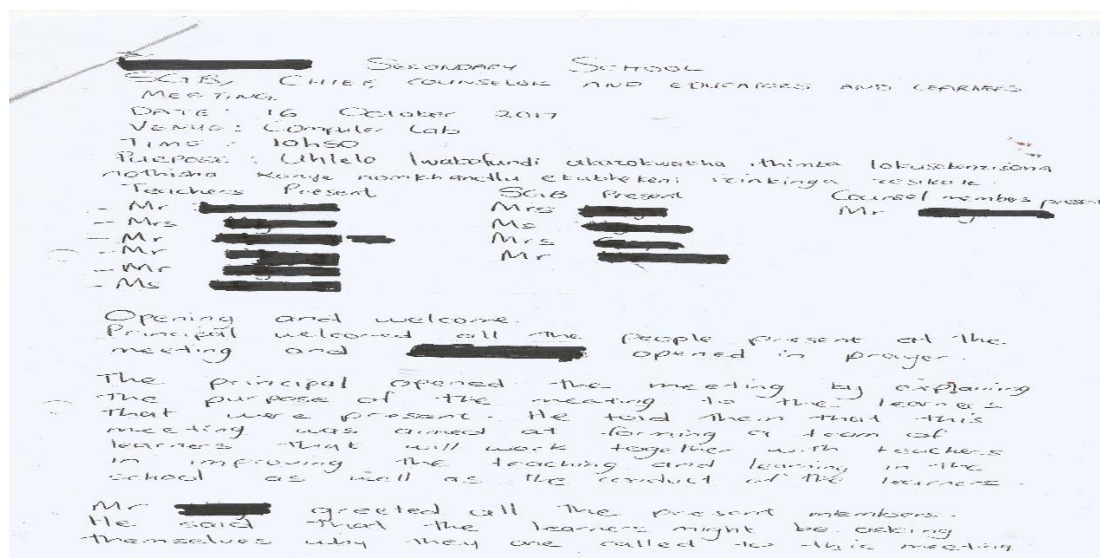 SECONDARY SCHOOL
SGB, CHIEF, COUNSELOR AND EDUCATORS AND LEARNERS
MEETING.
DATE : 16 October 2017
VENUE : Computer Lab
TIME : 10h50
PURPOSE : Uhlelo lwabafundi abazokwakha ithimba lokusebenzisana
nothisha kanye nomkhandlu ekubhekeni izinkinga zesikole.
Teachers Present SGB Present Counsel members present
- Mr Mrs Mr
- Mrs Ms
- Mr Mrs
- Mr Mr
- Mr
- Ms
Opening and welcome.
Principal welcomed all the people present at the
meeting and opened in prayer.
The principal opened the meeting by explaining
the purpose of the meeting to the learners
that were present. He told them that this
meeting was aimed at forming a team of
learners that will work together with teachers
in improving the teaching and learning in the
school as well as the conduct of the learners.
Mr greeted all the present members.
He said that the learners might be asking
themselves why they are called to this meeting